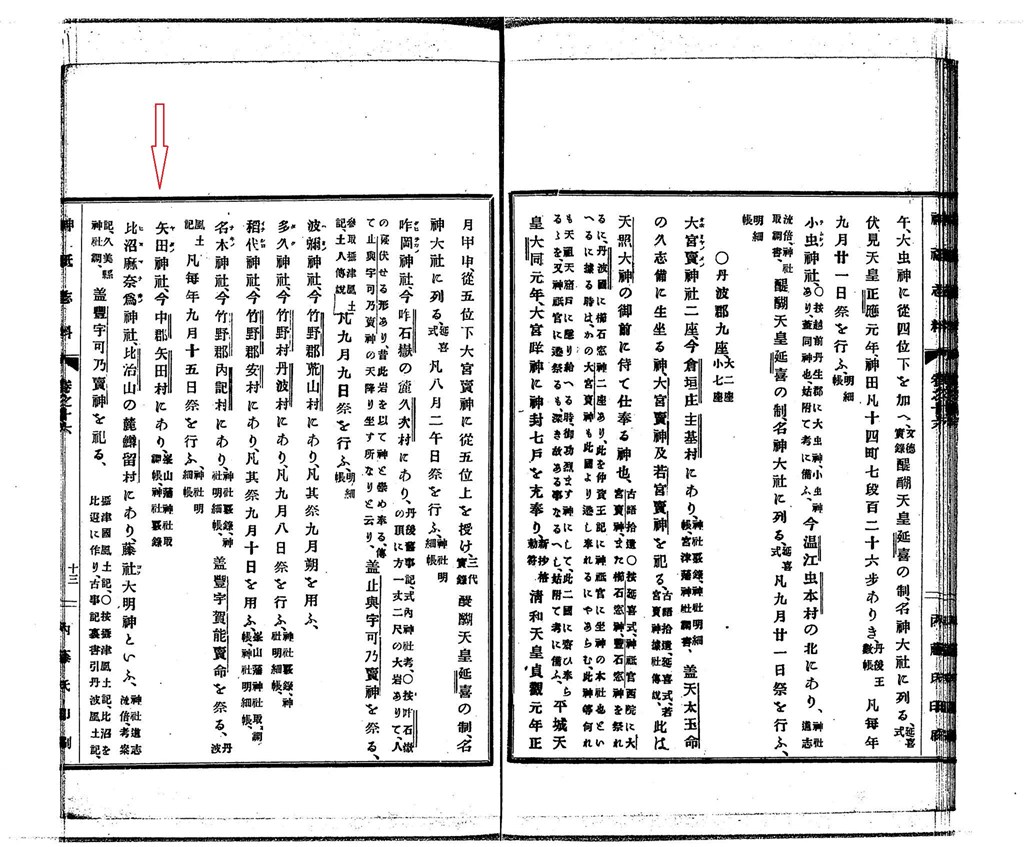 午、大虫神に從四位下を加へ、文德實錄醍醐天皇延喜の制、名神大社に列る、延喜式
伏見天皇正應元年、神田凡十四町七段百二十六步ありき、丹後國田數帳凡每年
九月廿一日祭を行ふ、明細
小虫神社、〇按越前丹生郡に大虫神、小虫神あり、蓋同神也、姑附て考に備ふ、今温江虫本村の北にあり、神社道志
流倍、神社取調書、醍醐天皇延喜の制名神大社に列る、延喜式凡九月廿一日祭を行ふ、
明細帳
〇丹波郡九座、大二座小七座
大宮賣神社二座、今倉垣庄主基村にあり、神社覈錄、神社明細帳、宮津藩神社調書、蓋天太玉命
の久志備に生坐る神、大宮賣神及若宮賣神を祀る、古語拾遺、延喜式、若宮賣神據社傳說、此は
天照大神の御前に侍て仕奉る神也、古語拾遺〇按延喜式、神祇官西院に大宮賣神、また櫛石窓神、豐石窓神を祭れ
るに、丹波國に櫛石窓神二座あり、此を仲資王記に神祇官に坐神の本社也とい
へるに據る時は、かの大宮賣神も此國より遷し奉れるにやあらむ、此神等何れ
も天祖天窟戶に隱り給へる時、御功烈ます神にして、此二國に齋ひ奉ら
るゝを、又神祇官に遷祭るも深き故ある事なるへし、姑附て考に備ふ、平城天
皇大同元年、大宮咩神に神封七戶を充奉り、新抄格勅符淸和天皇貞觀元年正
月甲申、從五位下大宮賣神に從五位上を授け、三代實錄醍醐天皇延喜の制、名
神大社に列る、延喜式凡八月二午日祭を行ふ、神社明細帳
咋岡神社、今咋石嶽の麓久次村にあり、丹後舊事記、式內神社考、〇按咋石嶽の頂に方一丈二尺の大岩ありて、人
の隆伏せる形あり、昔此岩を以て神と崇め奉る、傳
て止與宇可乃賣神の天降り坐す所なりと云り、蓋止與宇可乃賣神を祭る、
參取攝津風土記、土人傳說凡九月九日祭を行ふ、明細
波彌神社、今竹野郡荒山村にあり、凡其祭九月朔を用ふ、
多久神社、今竹野村丹波村にあり、凡九月八日祭を行ふ、神社覈錄、神社明細帳、
稻代神社、今竹野郡安村にあり、凡其祭九月十日を用ふ、峯山藩神社取調帳、神社明細帳、
名木神社、今竹野郡內記村にあり、神社覈錄、神社明細帳、蓋豐宇賀能賣命を祭る、丹波
風土凡每年九月十五日祭を行ふ、神社明細帳
矢田神社、今中郡矢田村にあり、峯山藩神社取調帳、神社覈錄
比沼麻奈爲神社、比治山の麓鱒留村にあり、藤社大明神といふ、神社道志流倍、考案
記、久美縣神社調、蓋豐宇可乃賣神を祀る、攝津國風土記、〇按攝津風土記、比沼を比遲に作り、古事記裏書引丹波風土記、
神祇志料
卷之十六
十三